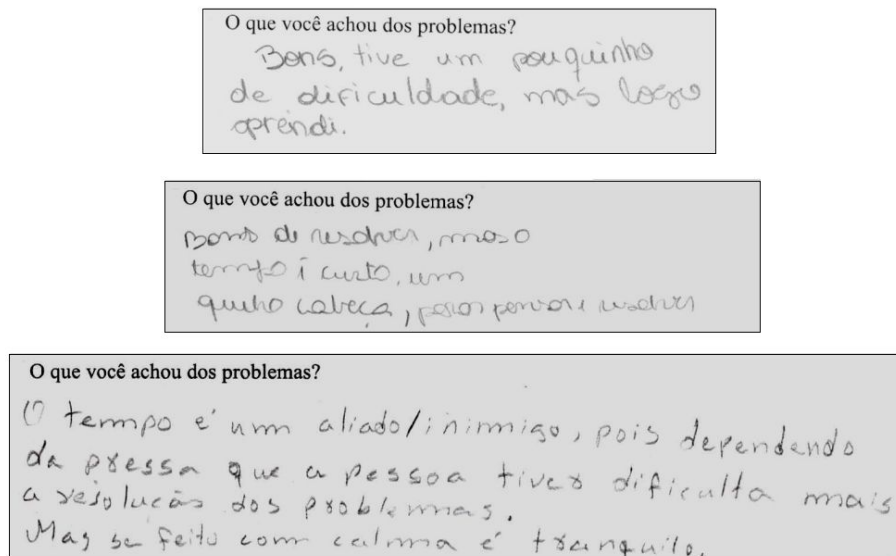 O que você achou dos problemas?
Bons, tive um pouquinho
de dificuldade, mas logo
aprendi.
O que você achou dos problemas?
Bons de resolver, mas o
tempo é curto, um
quebra cabeça, para pensar e resolver
O que você achou dos problemas?
O tempo é um aliado/inimigo, pois dependendo
da pressa que a pessoa tiver dificulta mais
a resolução dos problemas.
Mas se feito com calma é tranquilo.